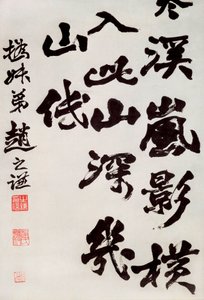 溪嵐影橫
入此山深幾
山低
撝叔弟趙之謙